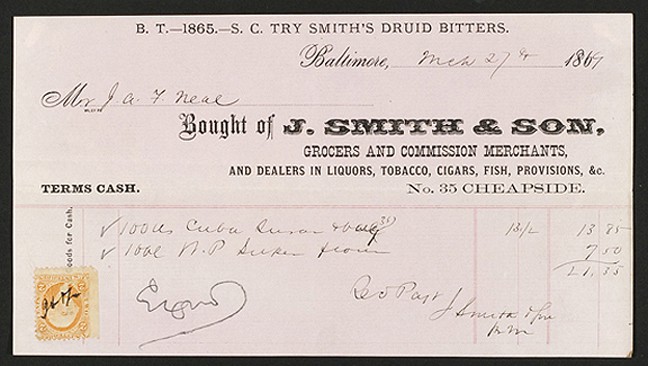 B. T.—1865.—S. C. TRY SMITH'S DRUID BITTERS.
Baltimore, Mch 27th 1869
Mr J. A. F. Neal
Bought of J. SMITH & SON,
GROCERS AND COMMISSION MERCHANTS,
AND DEALERS IN LIQUORS, TOBACCO, CIGARS, FISH, PROVISIONS, &c.
TERMS CASH. No. 35 CHEAPSIDE.
oods for Cash.
Cuba 13 85
Super flour 7 50
21,35
Recd Payt
J Smith & Son